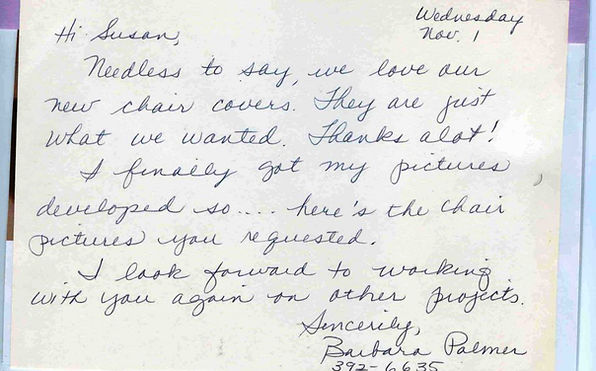 Wednesday
Nov. 1
Hi Susan,
Needless to say, we love our
new chair covers. They are just
what we wanted. Thanks alot!
I finally got my pictures
developed so.... here's the chair
pictures you requested.
I look forward to working
with you again on other projects.
Sincerily,
Barbara Palmer
392-6635